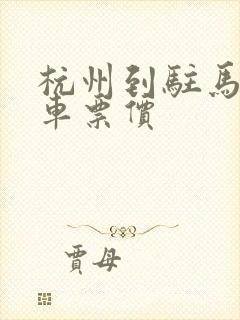 杭州到駐馬
車票價
賈母